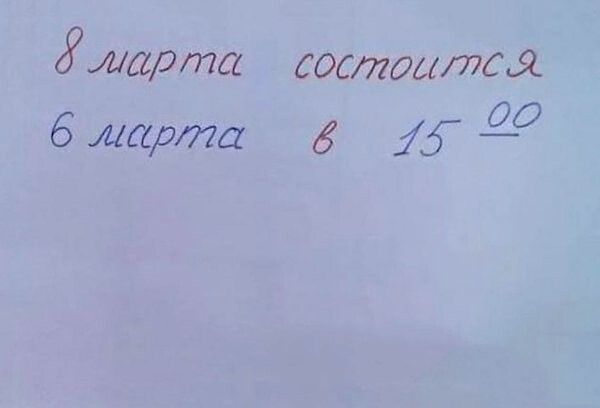 8 марта состоится
6 марта в 15 00